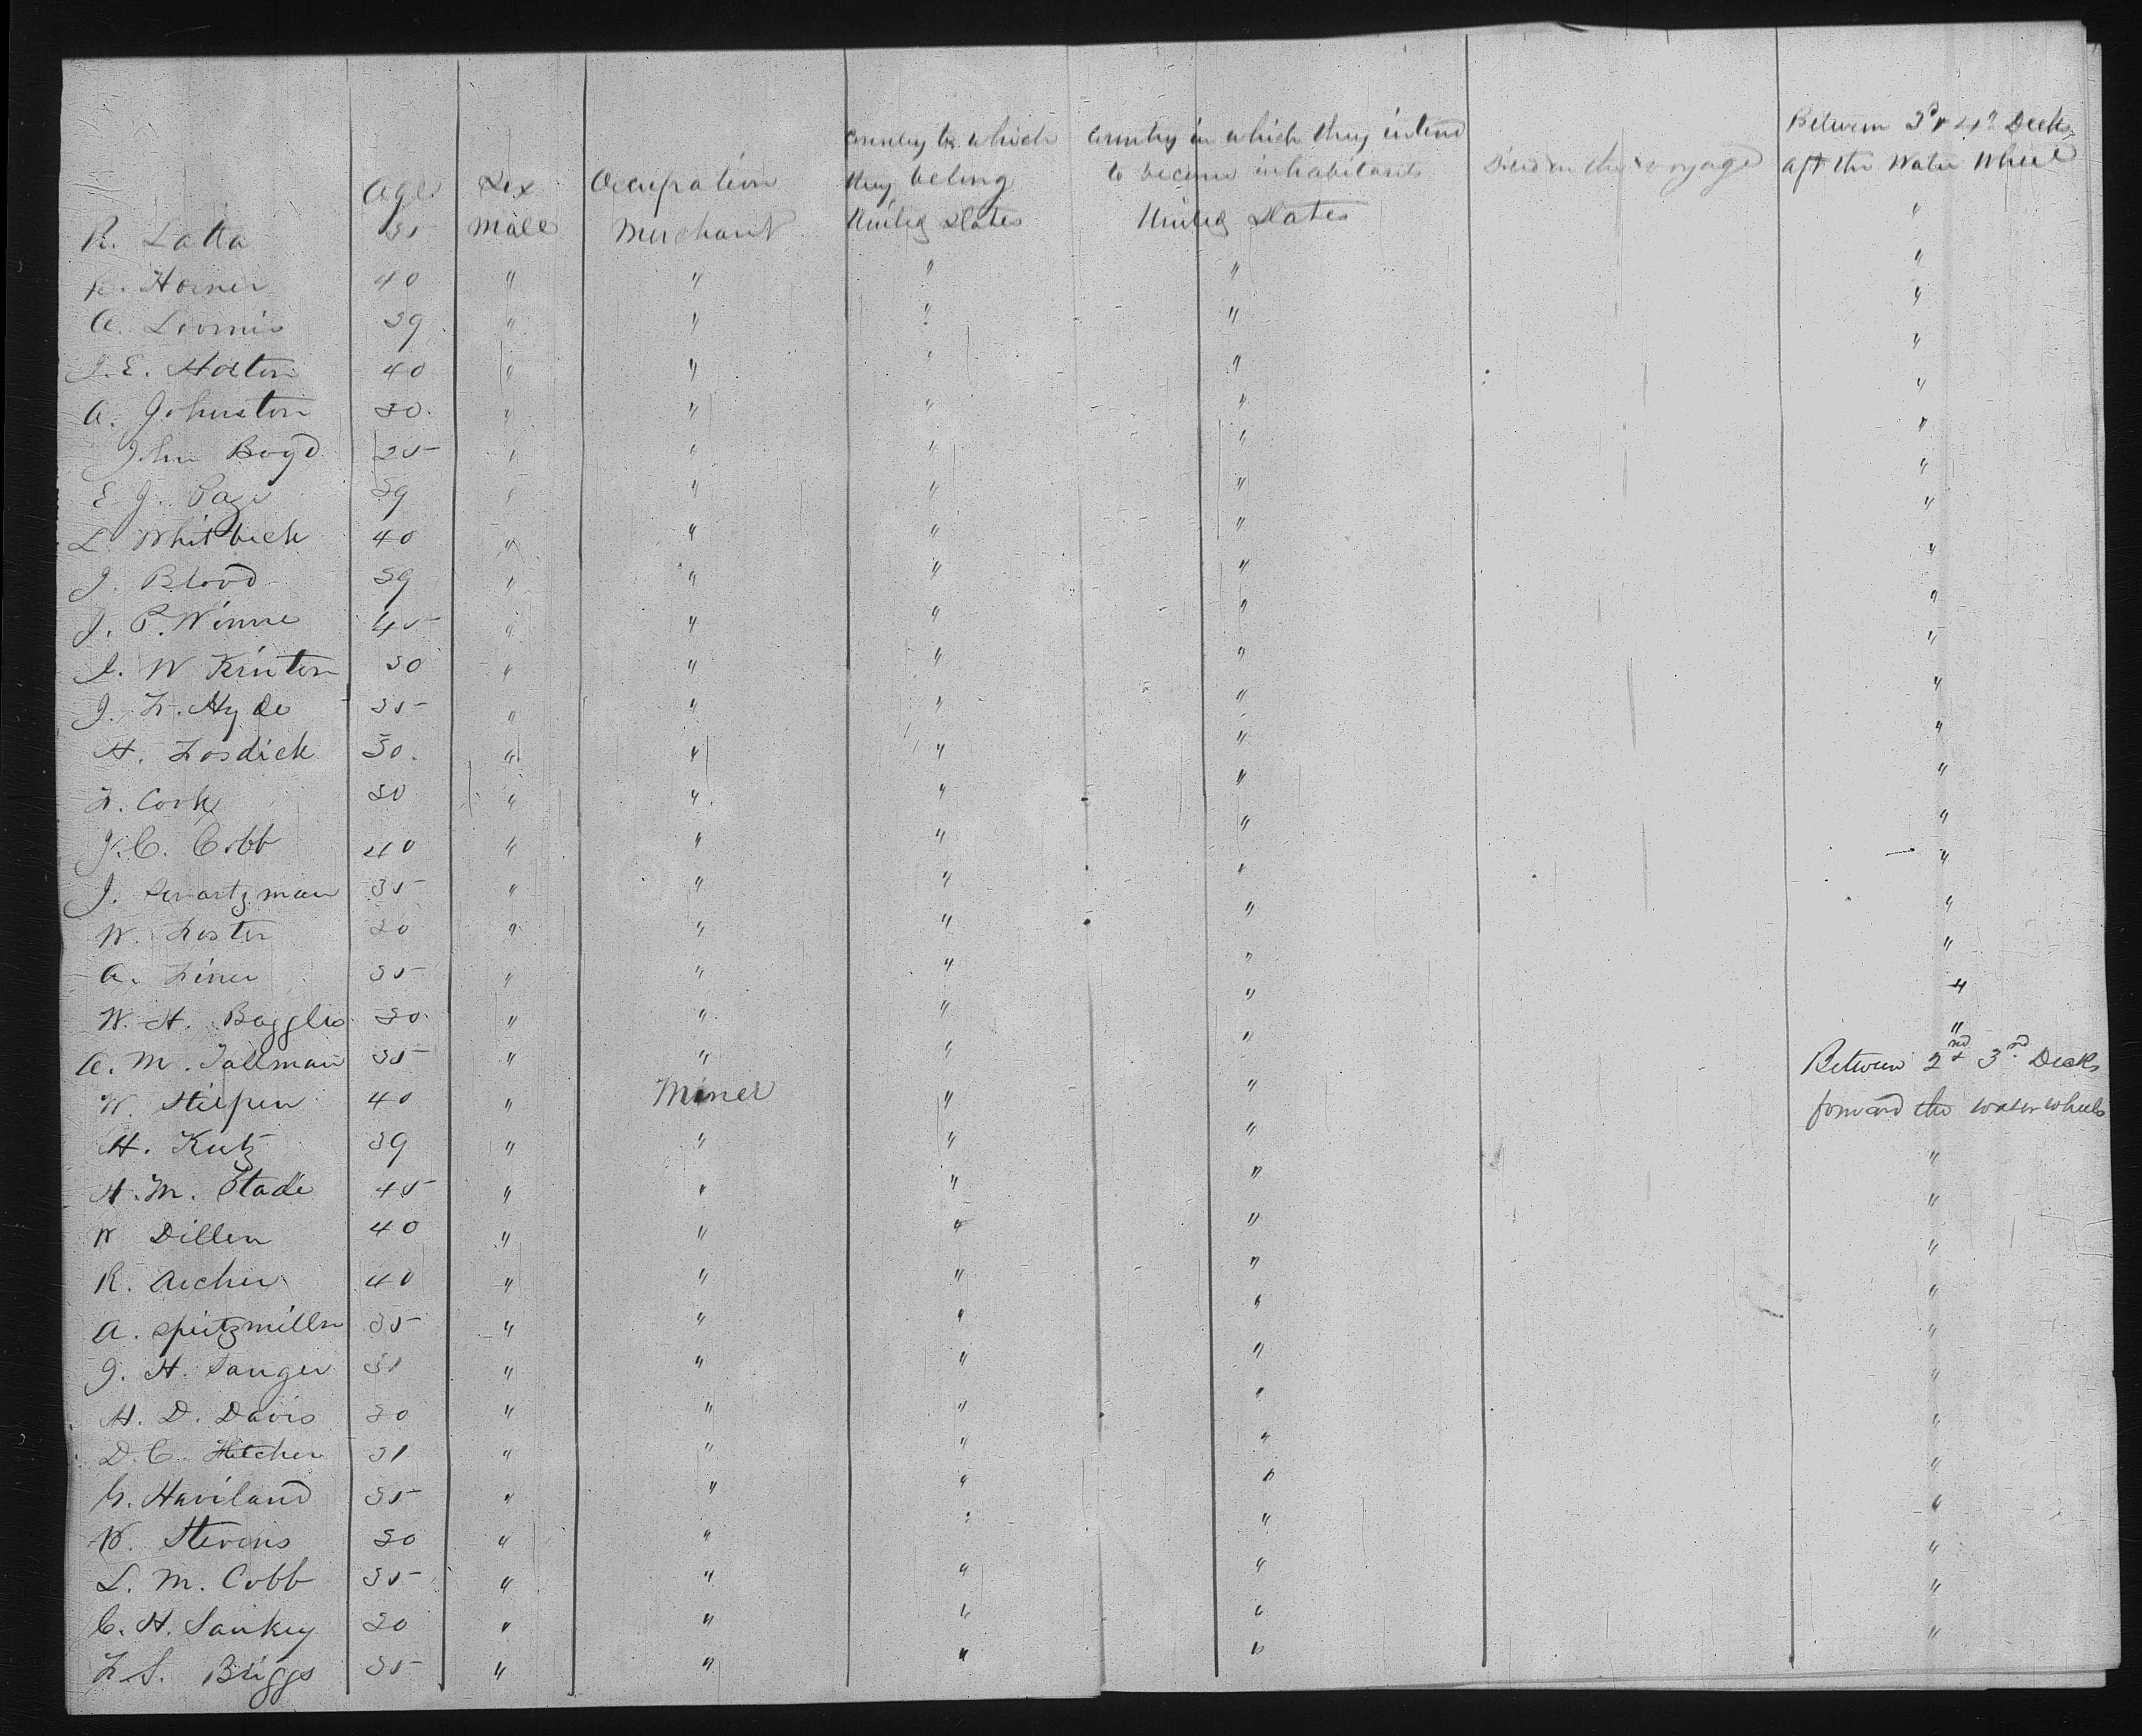 Age Sex Occupation Country to which they belong Country in which they intend to become inhabitants Died on the voyage Between 3d & 4th Decks aft the Water Wheel
R. Latta 35 Male Merchant United States United States "
R. Horner 40 " " " " "
A. Loomis 39 " " " " "
J. E. Holton 40 " " " " "
A. Johnston 30 " " " " "
John Boyd 25 " " " " "
E J. Page 39 " " " " "
L. Whitbeck 40 " " " " "
J. Blood 39 " " " " "
J. P. Winne 45 " " " " "
J. W Kinton 30 " " " " "
J. F. Hyde 35 " " " " "
H. Fosdick 30. " " " " "
F. Cook 30 " " " " "
J. C. Cobb 40 " " " " "
J. Swartzman 35 " " " " "
W. Foster 30 " " " " "
A. Finer 35 " " " " "
W. H. Baggles 30 " " " " "
A. M. Tallman 35 " " " " "
W. Stiepen 40 " Miner " " Between 2nd & 3rd Decks forward the water wheels
H. Kutz 39 " " " " "
H. M. Stade 45 " " " " "
W Dillen 40 " " " " "
R. Archer 40 " " " " "
A. Spitzmiller 35 " " " " "
J. H. Sanger 31 " " " " "
H. D. Davis 30 " " " " "
D. C. Hitcher 31 " " " " "
G. Haviland 35 " " " " "
W. Stevens 30 " " " " "
L. M. Cobb 35 " " " " "
C. H. Sankey 30 " " " " "
F. S. Briggs 35 " " " "